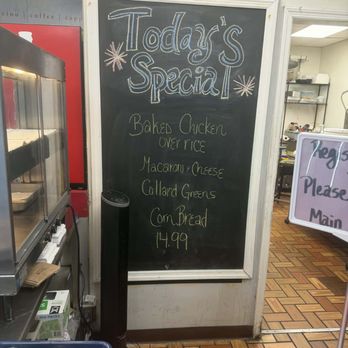 Today's
Special
Baked Chicken
over rice
Macaroni & Cheese
Collard Greens
Corn Bread
14.99
Please
Main